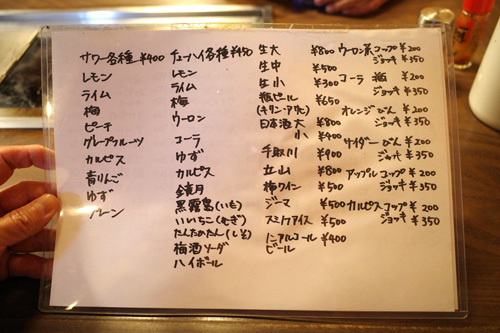 サワー各種 ¥400
レモン
ライム
梅
ピーチ
グレープフルーツ
カルピス
青りんご
ゆず
プレーン
チューハイ各種 ¥450
レモン
ライム
梅
ウーロン
コーラ
ゆず
カルピス
鏡月
黒霧島(いも)
いいちこ(むぎ)
たんたかたん(しそ)
梅酒ソーダ
ハイボール
生大 ¥800
生中 ¥500
生小 ¥300
瓶ビール ¥650
(キリン・アサヒ)
日本酒大 ¥800
小 ¥400
手取川 ¥900
立山 ¥800
梅ワイン ¥500
ジーマ ¥500
スミノフアイス ¥500
ノンアルコール ¥400
ビール
ウーロン茶 コップ ¥200
ジョッキ ¥350
コーラ 瓶 ¥200
ジョッキ ¥350
オレンジ びん ¥200
ジョッキ ¥350
サイダー びん ¥200
ジョッキ ¥350
アップル コップ ¥200
ジョッキ ¥350
カルピス コップ ¥200
ジョッキ ¥350